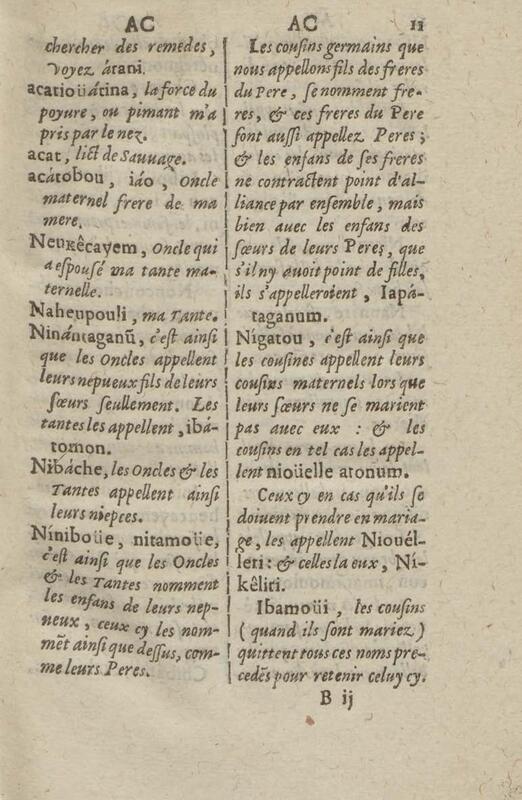 AC
AC
11
chercher des remedes,
Voyez árani.
acatioüátina, la force du
poyure, ou pimant m'a
pris par le nez.
acat, lict de Sauvage.
acátobou, iáo, Oncle
maternel frere de ma
mere.
Neukêcayem, Oncle qui
a espousé ma tante ma-
ternelle.
Naheupouli, ma Tante.
Ninántaganũ, c'est ainsi
que les Oncles appellent
leurs nepueux fils de leurs
sœurs seullement. Les
tantes les appellent, ibá-
tomon.
Nibáche, les Oncles & les
Tantes appellent ainsi
leurs niepces.
Níniboüe, nitamoüe,
c'est ainsi que les Oncles
& les Tantes nomment
les enfans de leurs nep-
neux, ceux cy les nom-
mẽt ainsi que dessus, com-
me leurs Peres.
Les cousins germains que
nous appellons fils des freres
du Pere, se nomment fre-
res, & ces freres du Pere
sont aussi appellez Peres;
& les enfans de ses freres
ne contractent point d'al-
liance par ensemble, mais
bien auec les enfans des
sœurs de leurs Peres, que
s'il ny auoit point de filles,
ils s'appelleroient, Iapá-
taganum.
Nígatou, c'est ainsi que
les cousines appellent leurs
cousins maternels lors que
leurs sœurs ne se marient
pas avec eux : & les
cousins en tel cas les appel-
lent nioüelle atonum.
Ceux cy en cas qu'ils se
doiuent prendre en maria-
ge, les appellent Niouél-
leri: & celles la eux, Ní-
kêliri.
Ibamoüi, les cousins
(quand ils sont mariez)
quittent tous ces noms pre-
cedẽs pour retenir celuy cy.
B ij